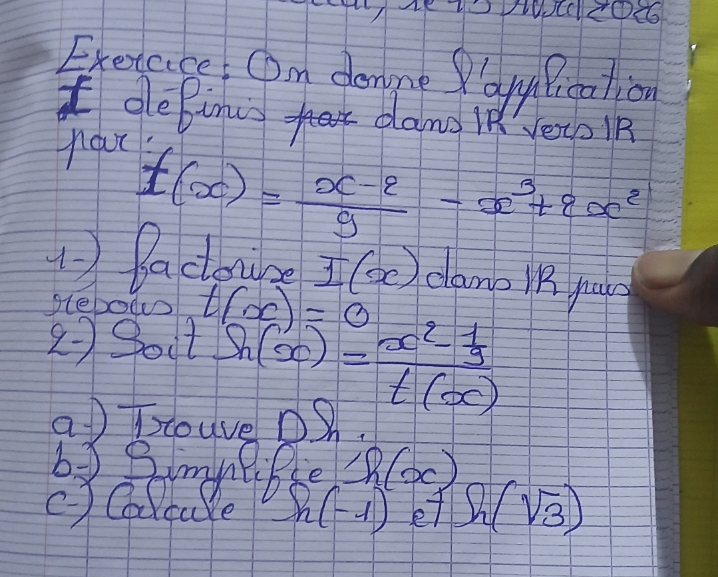 Exercice: On donne l'application
t définis dans IR vers IR
par:
t(x) = (x-2)/9 - x³+2x²
1-) factorise t(x) dans IR puis
resous t(x) = 0
2-) Soit h(x) = (x² - 1/9)/t(x)
a-) Trouve Dh.
b-) Simplifie h(x)
c-) Calcule h(-1) et h(√3)